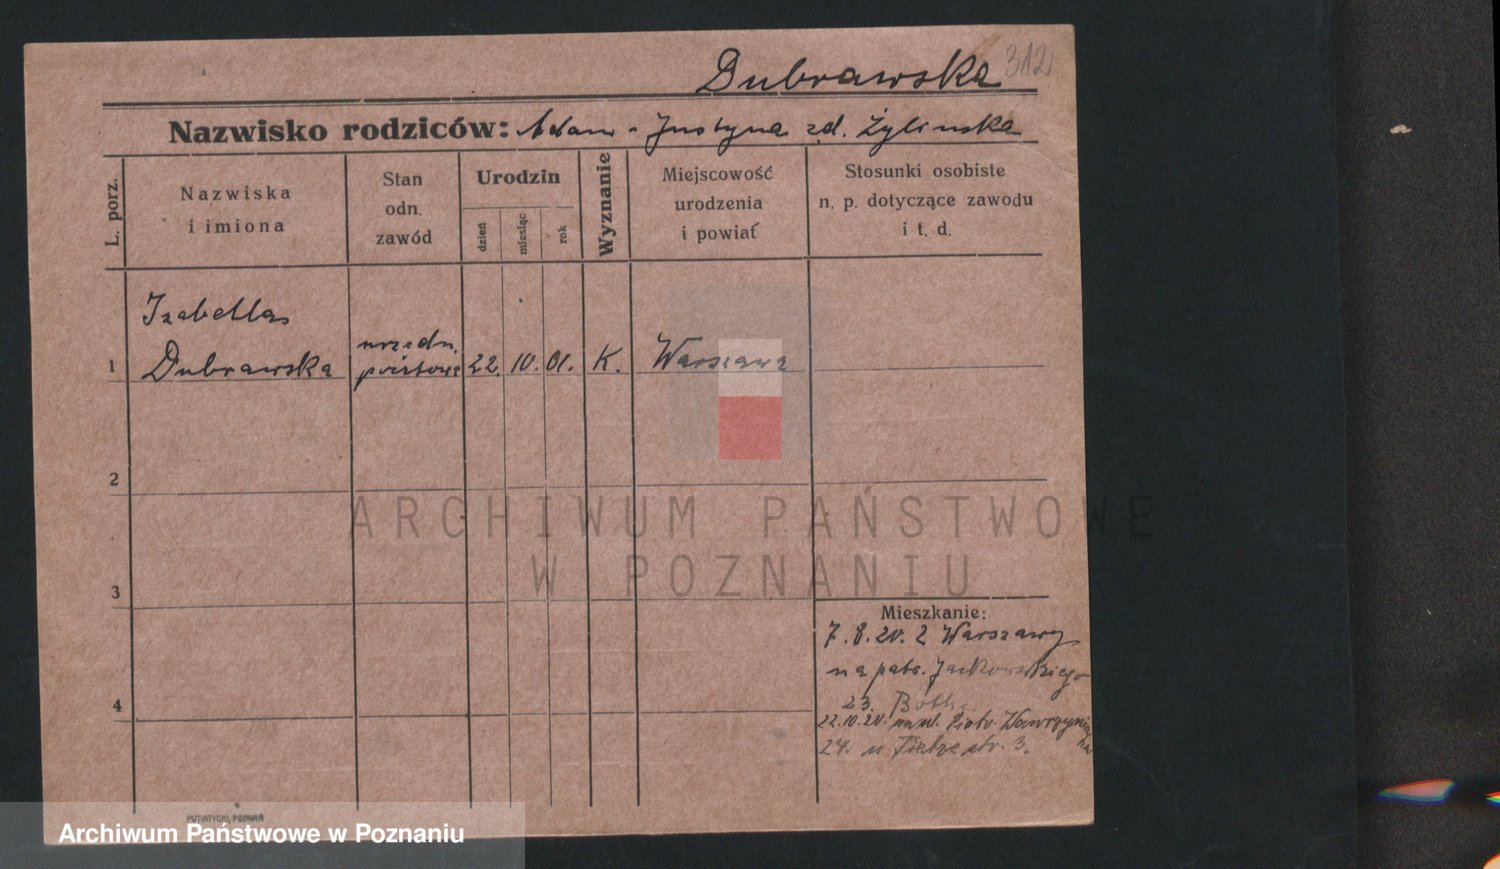 Dubrawska 312
Nazwisko rodziców: Adam - Justyna zd. Żylinska
L. porz.
Nazwiska
i imiona
Stan
odn.
zawód
Urodzin
dzień
miesiąc
rok
Wyznanie
Miejscowość
urodzenia
i powiat
Stosunki osobiste
n. p. dotyczące zawodu
i t. d.
Izabella
1 Dubrawska urzedn. 22. 10. 01. K. Warszawa
2
3
4
ARCHIWUM PAŃSTWOWE
W POZNANIU
Mieszkanie:
7. 8. 20. z Warszawy
na patr. Jackowskiego
23.
22.10.20. na ul. Piotr. Wawrzyniaka
24. u str. 3.
PUTIATYCKI, POZNAŃ
Archiwum Państwowe w Poznaniu